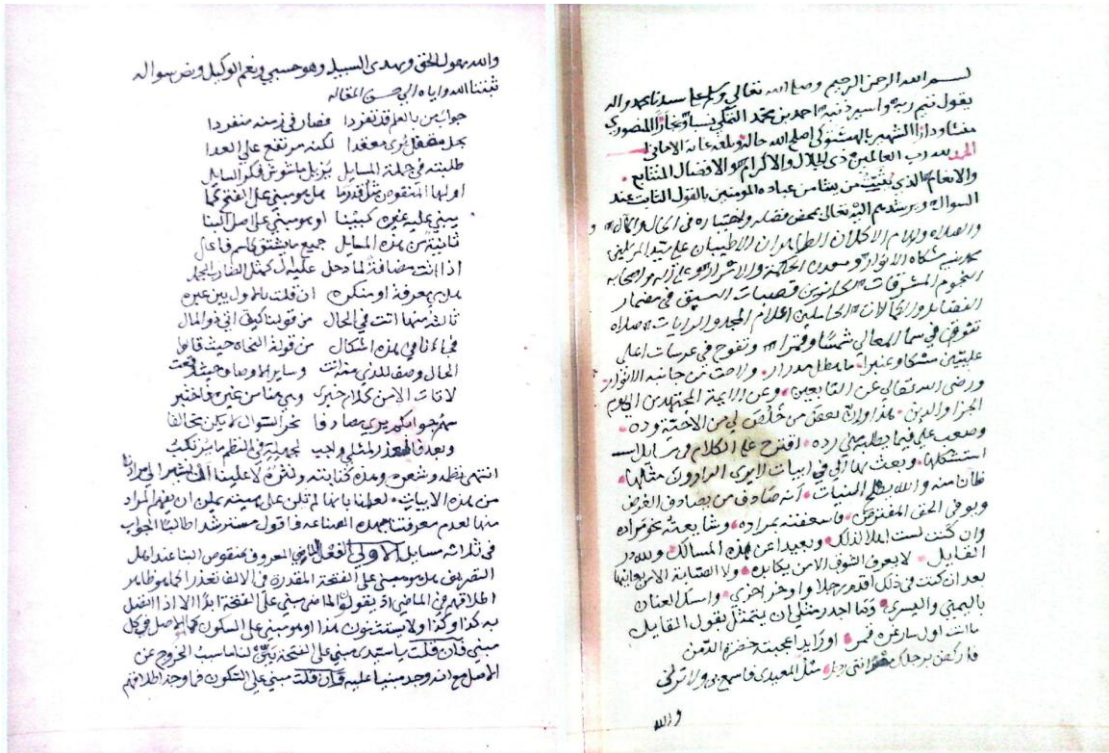 بسم الله الرحمن الرحيم وصلى الله تعالى وسلم على سيدنا محمد واله
يقول فقير ربه واسير ذنبه احمد بن محمد الفلكي نسبا ونجارا المنصوري
منشا ودارا الشهير بالهشتوكي اصلح الله حاله وبلغه غاية الاماني
الحمد لله رب العالمين ذي الجلال والاكرام والافضال المتتابع
والانعام الذي يثبت من يشا من عباده المومنين بالقول الثابت عند
السوال ويرشدهم اليه تعالى بمحض فضله واختياره في الحال والمآل
والصلاة والسلام الاكملان الطاهران الاطيبان على سيد المرسلين
محمد مشكاة الانوار ومعدن الحكمة والاسرار وعلى آله واصحابه
النجوم المشرقات الحائزين قصبات السبق في مضمار
الفضائل والكمالات الحاملين اعلام المجد والرايات صلاة
تشرق في سما المعالي شمسا وقمرا وتفوح في عرصات اعلى
عليين مسكا وعنبرا ما هطل مدرار ولاحت من جانبه الانوار
ورضي الله تعالى عن التابعين وعن الايمة المجتهدين الى يوم
الجزا والدين هذا وان بعض من خلص لي من الاحبة وده
وصعب علي فيما يطلبه مني رده اقترح علي الكلام في مسايل
استشكلها وبعث بها الي في ابيات لا يرى الراوون مثالها
ظانا منه والله يصلح النيات انه صادف من يصادف الغرض
ويوفي الحق المفترض فاسعفته بمراده وشايعته نحو مراده
وان كنت لست اهلا لذلك وبعيدا عن هذه المسالك ولله در
القايل لا يعرف الشوق الا من يكابده ولا الصبابة الا من يعانيها
بعد ان كنت في ذلك اقدم رجلا واوخر اخرى وامسك العنان
باليمنى واليسرى وما اجدر مثلي ان يتمثل بقول القايل
ما انت اول سار غره قمر او رايد اعجبته خضرة الدمن
مثل المعيدي فاسمع بي ولا ترني
والله
والله يقول الحق ويهدي السبيل وهو حسبي ونعم الوكيل ونص سواله
ثبتنا الله واياه الى حسن المقاله
جواب من بالعلم قد تفردا فصار في زمنه منفردا
لكنه مرتفع على العدا
طلبته في جملة المسايل يزيل ما شوش فكر السايل
اولها المنقوص مثل قد رمى هل هو مبني على الفتح كما
يبنى عليه غيره كبيننا او هو مبني على اصل البنا
ثانية من هذه المسايل جميع ما يشتق كاسم فاعل
اذا اتت مضافة لما دخل عليه ال كمثل الضارب الجمل
هل هي معرفة او منكره ان قلت بالاول بين غيره
ثالثة منها اتت في الحال من قولنا كيف اتى ذو المال
فجاءنا في هذه اشكال من قولة النحاة حيث قالوا
الحال وصف للذي منه اتت وساير الاوصاف حيث وقعت
لا تات الا من كلام خبري وهي هنا من غيره فاختبر
نحو السوال لا يكن مخالفا
انتهى بنظمه
من هذه الابيات لعلمنا بانها لم تكن على هيئة يمكن ان يفهم المراد
منها لعدم معرفتنا بهذه الصناعة فاقول مسترشدا طالبا للجواب
في ثلاثة مسايل الاولى الفعل الماضي المعروف بمنقوص البنا عند اهل
التصريف هل هو مبني على الفتحة المقدرة في الالف تعذرا كما هو ظاهر
اطلاقهم في الماضي اذ يقولوا الماضي مبني على الفتحة ابدا الا اذا اتصل
به كذا وكذا ولا يستثنون هذا او هو مبني على السكون كما هو الاصل في كل
مبني فان قلت يا سيدي مبني على الفتحة بين لنا ما سبب الخروج عن
الاصل مع انه وجد مبنيا عليه وان قلت مبني على السكون فما وجه اطلاقهم